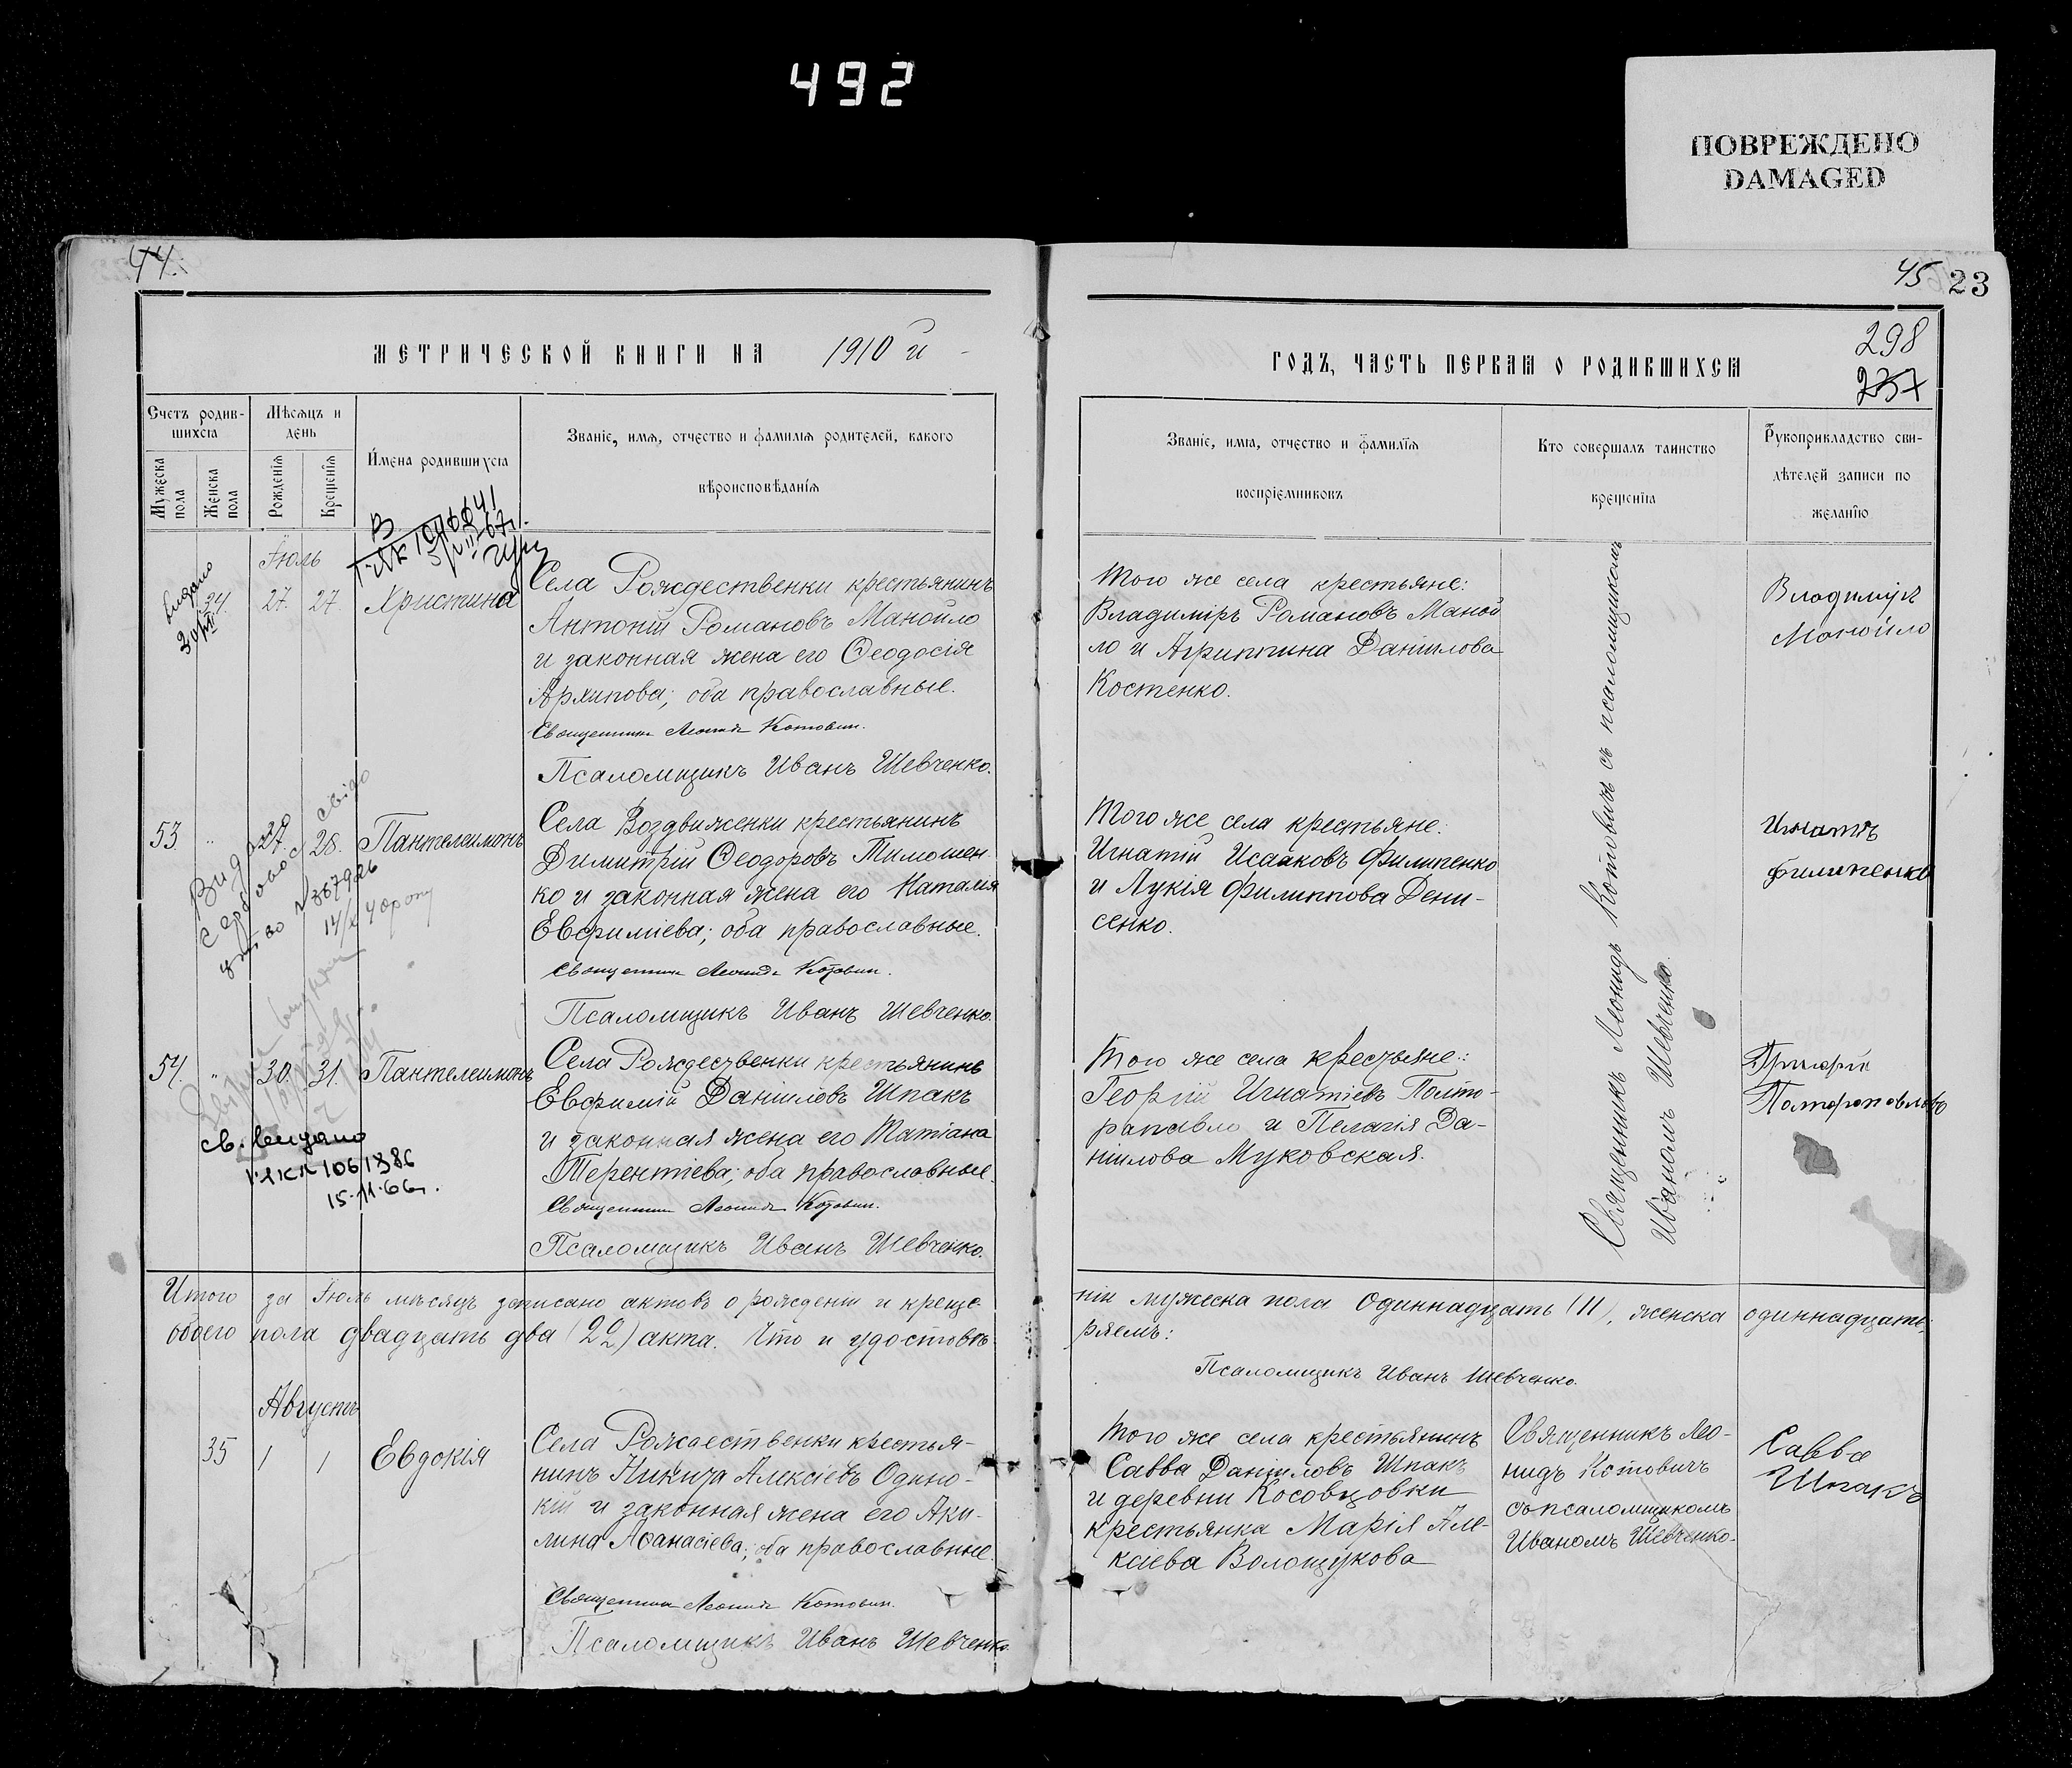 492
ПОВРЕЖДЕНО
DAMAGED
44.
45
23
МЕТРИЧЕСКОЙ КНИГИ НА 1910 й
ГОДЪ, ЧАСТЬ ПЕРВАЯ О РОДИВШИХСЯ
298
237
Счетъ родив-
шихся
Мужеска
пола
Женска
пола
Мѣсяцъ и
день
Рожденія
Крещенія
Имена родившихся
Званіе, имя, отчество и фамилія родителей, какого
вѣроисповѣданія
Званіе, имя, отчество и фамилія
воспріемниковъ
Кто совершалъ таинство
крещенія
Рукоприкладство сви-
дѣтелей записи по
желанію
Іюль
34. 27. 27. Христина
Села Рождественки крестьянинъ
Антоній Романовъ Манойло
и законная жена его Ѳеодосія
Архипова; оба православные.
Священникъ Леонидъ Котовичъ.
Псаломщикъ Иванъ Шевченко.
Того же села крестьяне:
Владиміръ Романовъ Маной
ло и Агриппина Даніилова
Костенко.
Владимиръ
Манойло
53 " 27. 28. Пантелеимонъ
Села Воздвиженки крестьянинъ
Димитрій Ѳеодоровъ Тимошен-
ко и законная жена его Наталія
Евфиміева; оба православные.
Священникъ Леонидъ Котовичъ.
Псаломщикъ Иванъ Шевченко.
Того же села крестьяне:
Игнатій Исааковъ Филипенко
и Лукія Филиппова Дени-
сенко.
Игнатъ
Филипенко
54. " 30. 31. Пантелеимонъ
Села Рождественки крестьянинъ
Евфимій Даніиловъ Шпакъ
и законная жена его Татіана
Терентіева; оба православные.
Священникъ Леонидъ Котовичъ.
Псаломщикъ Иванъ Шевченко.
Того же села крестьяне:
Георгій Игнатіевъ Полто-
рапавло и Пелагія Да-
ніилова Муковская.
св. выдано
15.11.66г.
Священникъ Леонидъ Котовичъ съ псаломщикомъ
Иваномъ Шевченко.
Итого за Іюль мѣсяцъ записано актовъ о рожденіи и креще-
ніи мужеска пола одиннадцать (11), женска одиннадцать,
обоего пола двадцать два (22) акта. Что и удостовѣ-
ряемъ:
Псаломщикъ Иванъ Шевченко.
Августъ
35 1 1 Евдокія
Села Рождественки крестья-
нинъ Никита Алексіевъ Одино-
кій и законная жена его Аки-
лина Аѳанасіева; оба православные.
Священникъ Леонидъ Котовичъ.
Псаломщикъ Иванъ Шевченко.
Того же села крестьянинъ
Савва Даніиловъ Шпакъ
и деревни Косовцовки
крестьянка Марія Але-
ксіева Волощукова
Священникъ Лео-
нидъ Котовичъ
съ псаломщикомъ
Иваномъ Шевченко.
Савва
Шпакъ